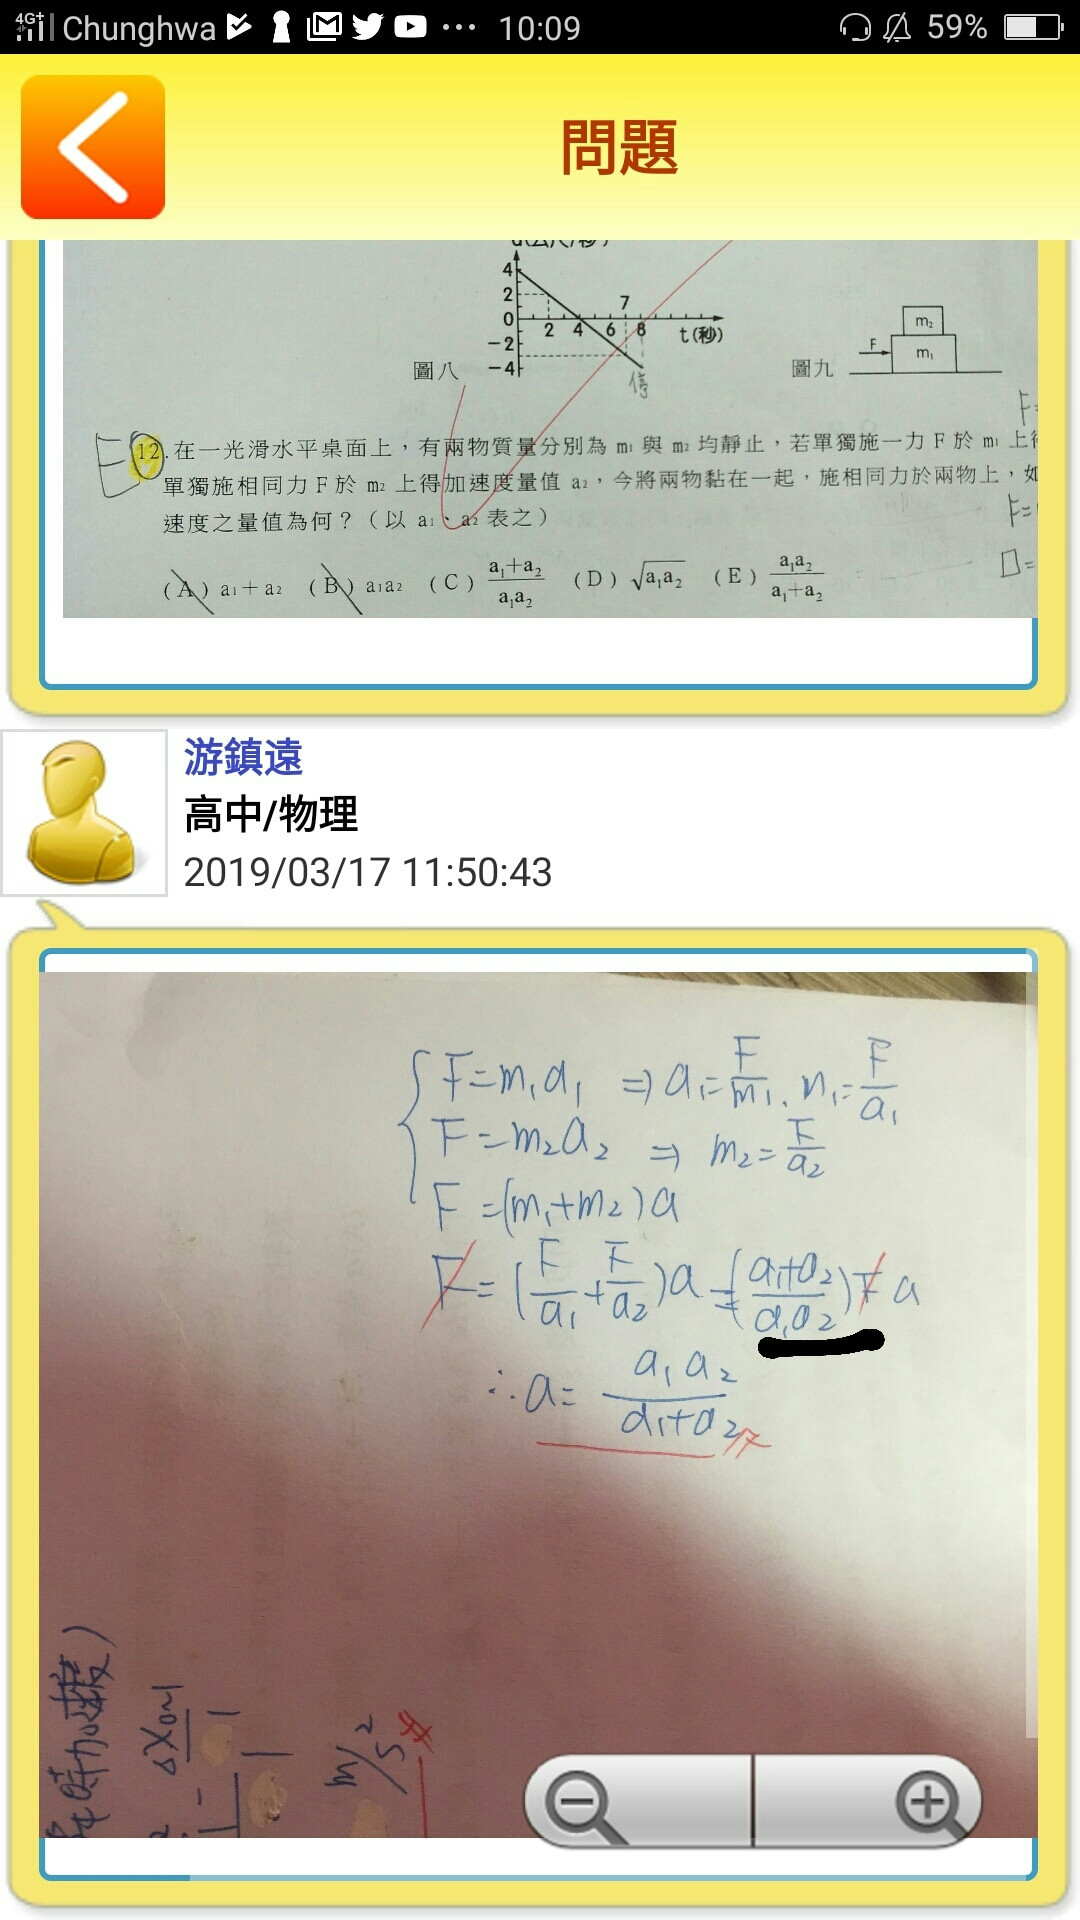 4G+ Chunghwa ... 10:09 59%
問題
4
2
0
-2
-4
2 4 6 8
7
t(秒)
停
圖八
m₂
F
m₁
圖九
E 12.在一光滑水平桌面上，有兩物質量分別為 m₁ 與 m₂ 均靜止，若單獨施一力 F 於 m₁ 上
單獨施相同力 F 於 m₂ 上得加速度量值 a₂，今將兩物黏在一起，施相同力於兩物上，如
速度之量值為何？（以 a₁、a₂ 表之）
F=
(A) a₁+a₂ (B) a₁a₂ (C) (a₁+a₂)/(a₁a₂) (D) √(a₁a₂) (E) (a₁a₂)/(a₁+a₂)
游鎮遠
高中/物理
2019/03/17 11:50:43
F=m₁a₁ ⇒ a₁=F/m₁. m₁=F/a₁
F=m₂a₂ ⇒ m₂=F/a₂
F=(m₁+m₂)a
F=(F/a₁+F/a₂)a=((a₁+a₂)/(a₁a₂))Fa
∴a=(a₁a₂)/(a₁+a₂)
m/s²